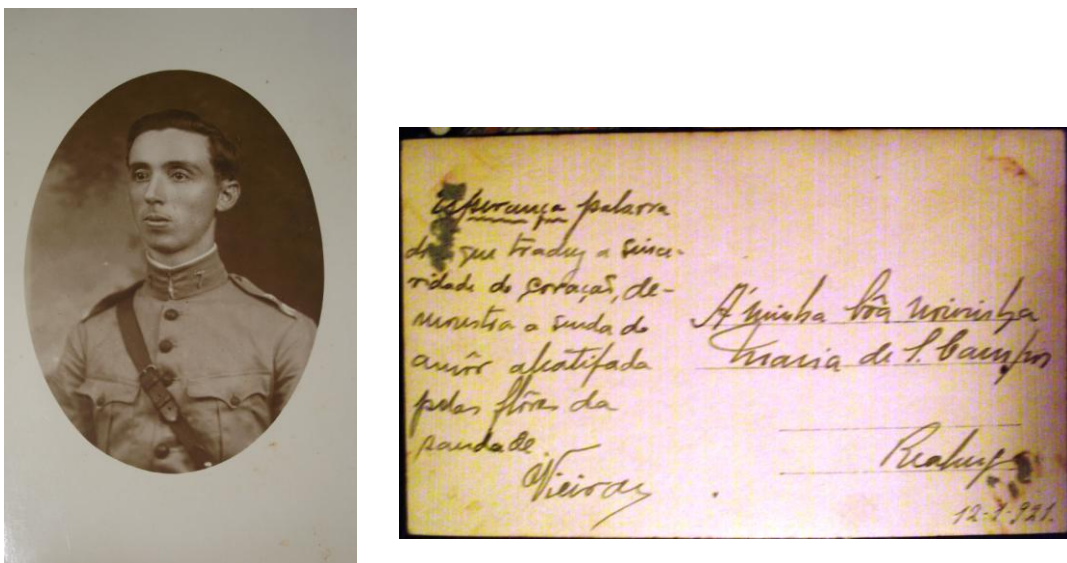 Esperança palavra
que traduz a since-
ridade do coração, de-
monstra a senda do
amôr alcatifada
pelas flôres da
saudade
Vieira
Á minha bôa noivinha
Maria de S. Campos
Realengo
12-1-921.